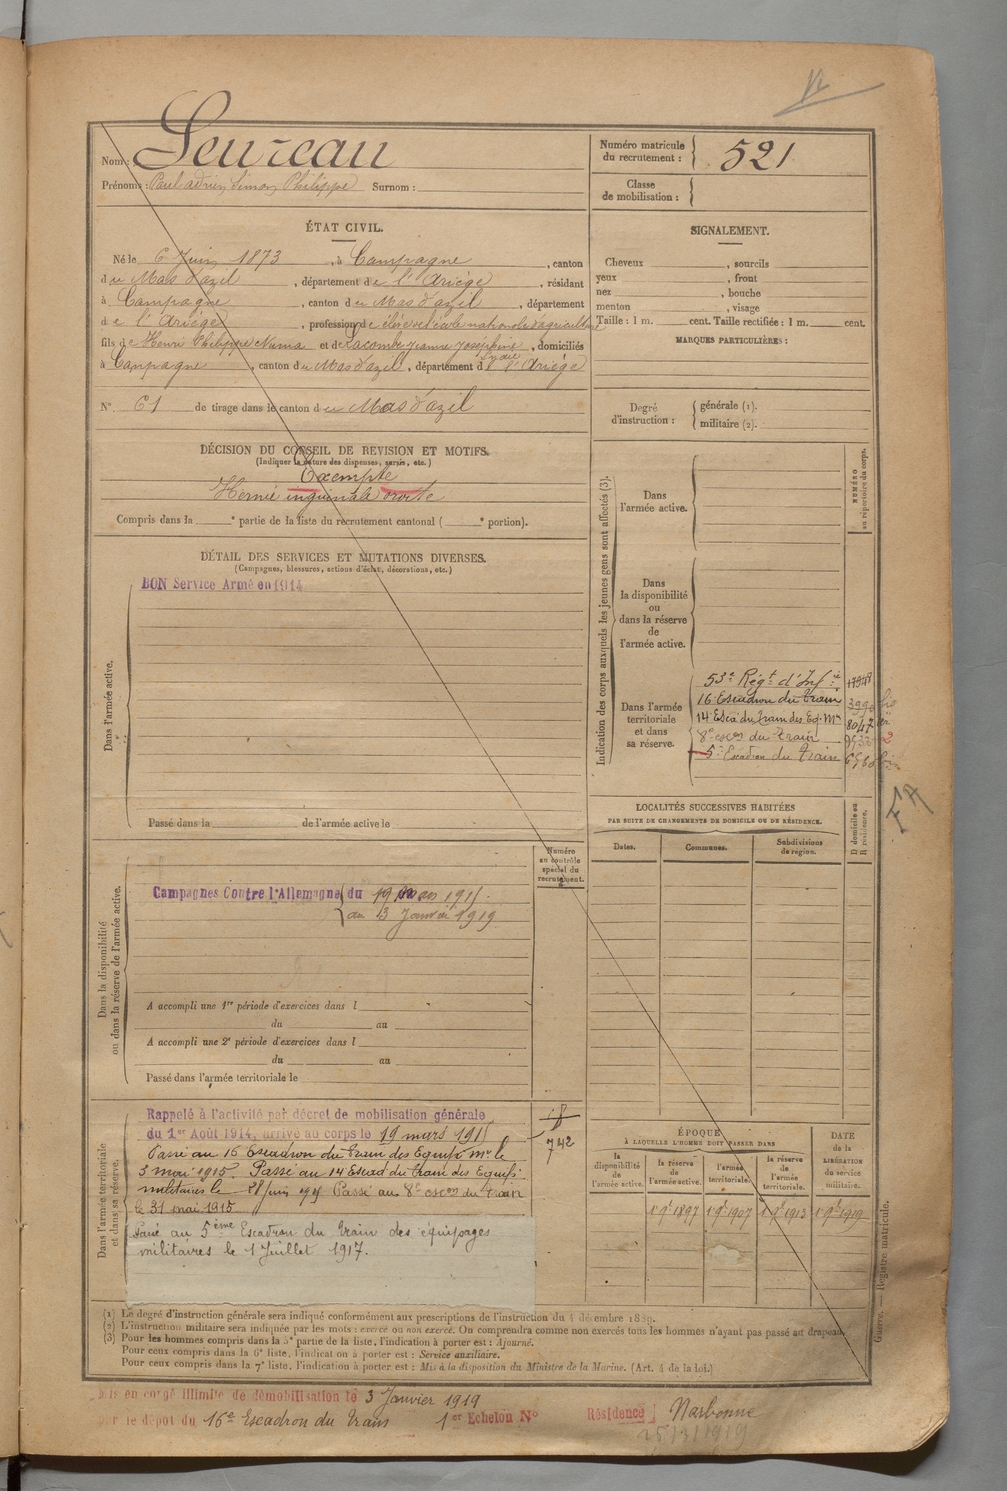 Nom : Leureau
Prénoms : Paul adrien Simon Philippe Surnom :
Numéro matricule du recrutement : 521
Classe de mobilisation :
ÉTAT CIVIL.
Né le 6 Juin 1873, à Campagne, canton
du Mas d'azil, département de l'Ariège, résidant
à Campagne, canton du Mas d'azil, département
de l'Ariège, profession d'élève école nationale d'agriculture
fils de Henri Philippe Numa et de Lacombe Jeanne Joséphine Lydie, domiciliés
à Campagne, canton du Mas d'azil, département de l'Ariège
N° 61 de tirage dans le canton du Mas d'azil
SIGNALEMENT.
Cheveux , sourcils
yeux , front
nez , bouche
menton , visage
Taille : 1 m. cent. Taille rectifiée : 1 m. cent.
MARQUES PARTICULIÈRES :
Degré d'instruction : générale (1).
militaire (2).
DÉCISION DU CONSEIL DE REVISION ET MOTIFS.
(Indiquer la nature des dispenses, sursis, etc.)
Exempté
Hernie inguinale droite
Compris dans la e partie de la liste du recrutement cantonal ( e portion).
DÉTAIL DES SERVICES ET MUTATIONS DIVERSES.
(Campagnes, blessures, actions d'éclat, décorations, etc.)
BON Service Armé en 1914
Dans l'armée active.
Passé dans la de l'armée active le
Indication des corps auxquels les jeunes gens sont affectés (3).
NUMÉRO au répertoire du corps.
Dans l'armée active.
Dans la disponibilité ou dans la réserve de l'armée active.
Dans l'armée territoriale et dans sa réserve.
53e Régt d'Infie
16 Escadron du train
14 Esca du train des Eq. Mres
8e escon du train
5e Escadron du train
LOCALITÉS SUCCESSIVES HABITÉES
PAR SUITE DE CHANGEMENTS DE DOMICILE OU DE RÉSIDENCE.
D domicile ou R résidence.
Dates. Communes. Subdivisions de region.
Numéro au contrôle spécial du recrutement.
Dans la disponibilité ou dans la réserve de l'armée active.
Campagnes Contre l'Allemagne du 19 Mars 1915
au 3 Janvier 1919
A accompli une 1re période d'exercices dans l
du au
A accompli une 2e période d'exercices dans l
du au
Passé dans l'armée territoriale le
Dans l'armée territoriale et dans sa réserve.
Rappelé à l'activité par décret de mobilisation générale
du 1er Août 1914, arrivé au corps le 19 mars 1915
Passé au 16 Escadron du train des Equip. Mres le
3 mai 1915. Passé au 14 Escad du train des Equip.
militaires le 28 juin 1915 Passé au 8e escon du train
le 31 mai 1915
Passé au 5ème Escadron du train des équipages
militaires le 1 Juillet 1917.
742
ÉPOQUE
À LAQUELLE L'HOMME DOIT PASSER DANS
DATE de la LIBÉRATION du service militaire.
la disponibilité de l'armée active. la réserve de l'armée active. l'armée territoriale. la réserve de l'armée territoriale.
1 9e 1897 1 9e 1907 1 9e 1913 1 9e 1919
Guerre. — Registre matricule.
(1) Le degré d'instruction générale sera indiqué conformément aux prescriptions de l'instruction du 4 décembre 1889.
(2) L'instruction militaire sera indiquée par les mots : exercé ou non exercé. On comprendra comme non exercés tous les hommes n'ayant pas passé au drapeau.
(3) Pour les hommes compris dans la 5e partie de la liste, l'indication à porter est : Ajourné.
Pour ceux compris dans la 6e liste, l'indication à porter est : Service auxiliaire.
Pour ceux compris dans la 7e liste, l'indication à porter est : Mis à la disposition du Ministre de la Marine. (Art. 4 de la loi.)
Mis en congé illimité de démobilisation le 3 Janvier 1919
par le dépôt du 16e Escadron du train 1er Echelon N°
Résidence Narbonne
25/3/1919